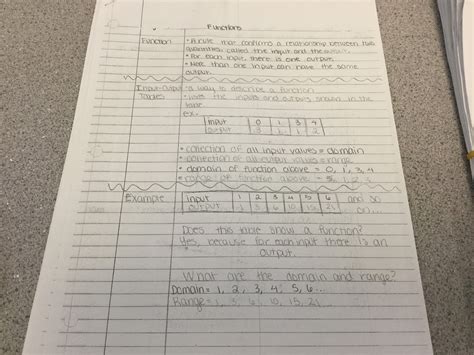 Functions
Function • A rule that confirms a relationship between two
quantities, called the input and the output.
• For each input, there is one output.
• More than one input can have the same
output.
Input-Output • a way to describe a function
Tables • lists the inputs and outputs shown in the
table
ex.
input 0 1 3 4
output 1 2
• collection of all input values = domain
• collection of all output values = range
• domain of function above = 0, 1, 3, 4
• range of function above =
Example input 1 2 3 4 5 6 and so
output 1 3 6 10 15 21 on...
Does this table show a function?
Yes, because for each input there is an
output.
What are the domain and range?
Domain = 1, 2, 3, 4, 5, 6...
Range = 1, 3, 6, 10, 15, 21...